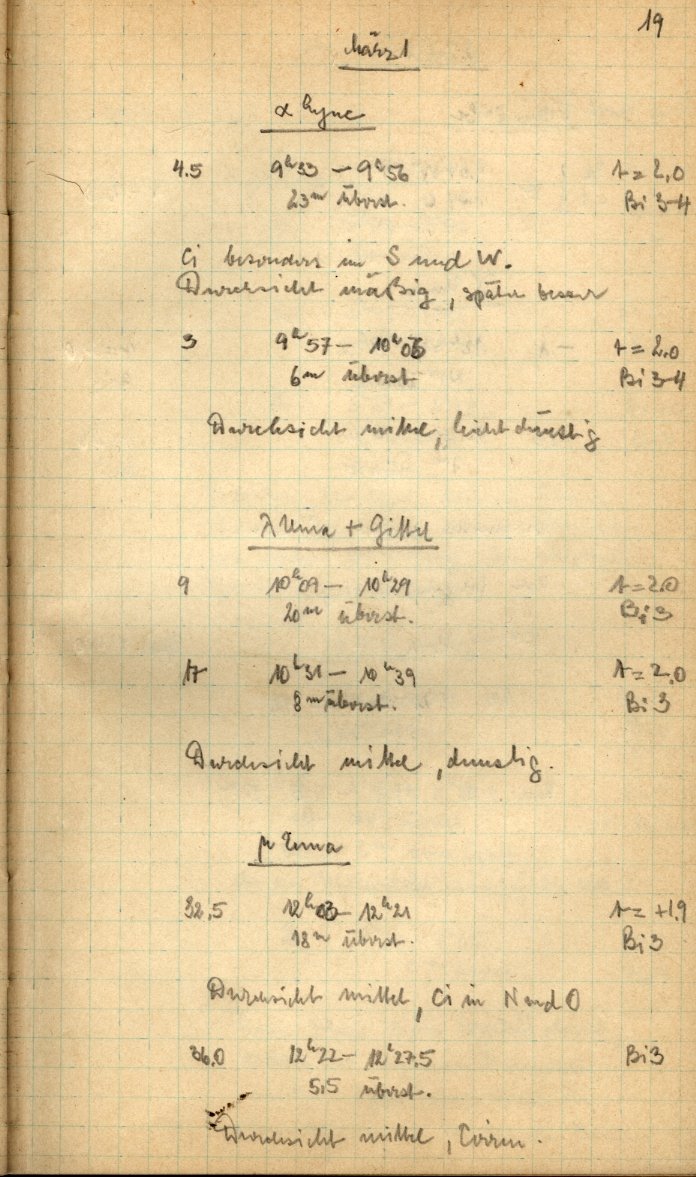 19
März 1
α Lync
4.5 9ʰ33 – 9ʰ56 t = 2,0
23ᵐ überst. Bi 3-4
Ci besonders im S und W.
Durchsicht mäßig, später besser
3 9ʰ57 – 10ʰ03 t = 2.0
6ᵐ überst Bi 3-4
Durchsicht mittel, leicht dunstig
λ Uma + Gittel
9 10ʰ09 – 10ʰ29 t = 2.0
20ᵐ überst. Bi 3
17 10ʰ31 – 10ʰ39 t = 2.0
8ᵐ überst. Bi 3
Durchsicht mittel, dunstig.
μ Uma
32,5 12ʰ03 – 12ʰ21 t = +1.9
18ᵐ überst. Bi 3
Durchsicht mittel, Ci in N und O
36,0 12ʰ22 – 12ʰ27,5 Bi 3
5,5 überst.
Durchsicht mittel, Cirren.